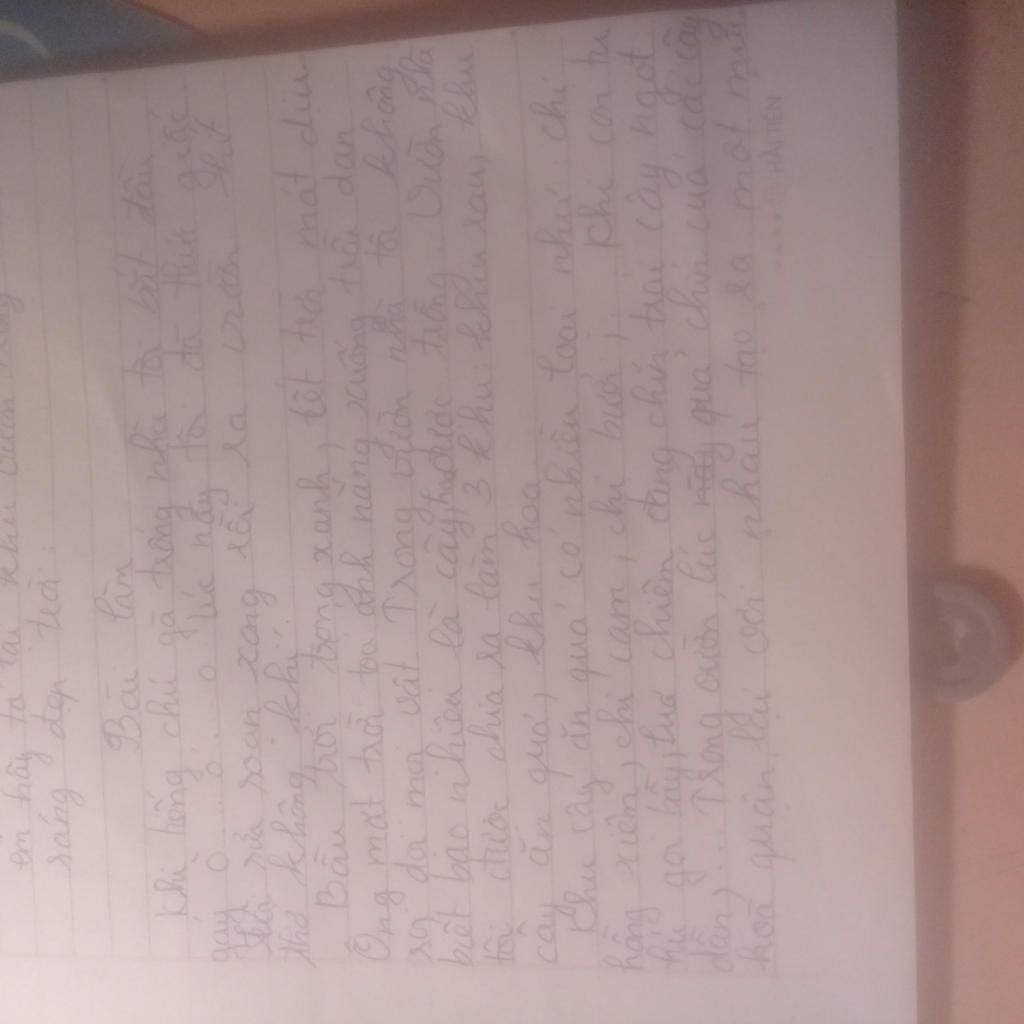 em hãy tả lại khu vườn trong
sáng đẹp trời.
Bài làm
Khi tiếng chú gà trống nhà tôi bắt đầu
gáy ò... ó... o lúc này tôi đã thức giấc.
rửa soan xong rồi ra vườn hít
thở không khí.
Bầu trời trong xanh, tiết trời mát dịu
Ông mặt trời toả ánh nắng xuống trần dan
vật. Trong vườn nhà tôi không
biết bao nhiêu là cây, hoa được trồng. Vườn nhà
tôi được chia ra làm 3 khu: khu rau, khu
cây ăn quả, khu hoa.
Khu cây ăn quả có nhiều loại như: chị
hồng xiêm, chị cam, chị bưởi,... khi con tu
hú gọi bầy, lúa chiêm đang chín trái cây ngọt
dần,... Trong vườn lúc quả chín của các cây
hoà quện lại với nhau tạo ra một mùi
HẢI TIẾN